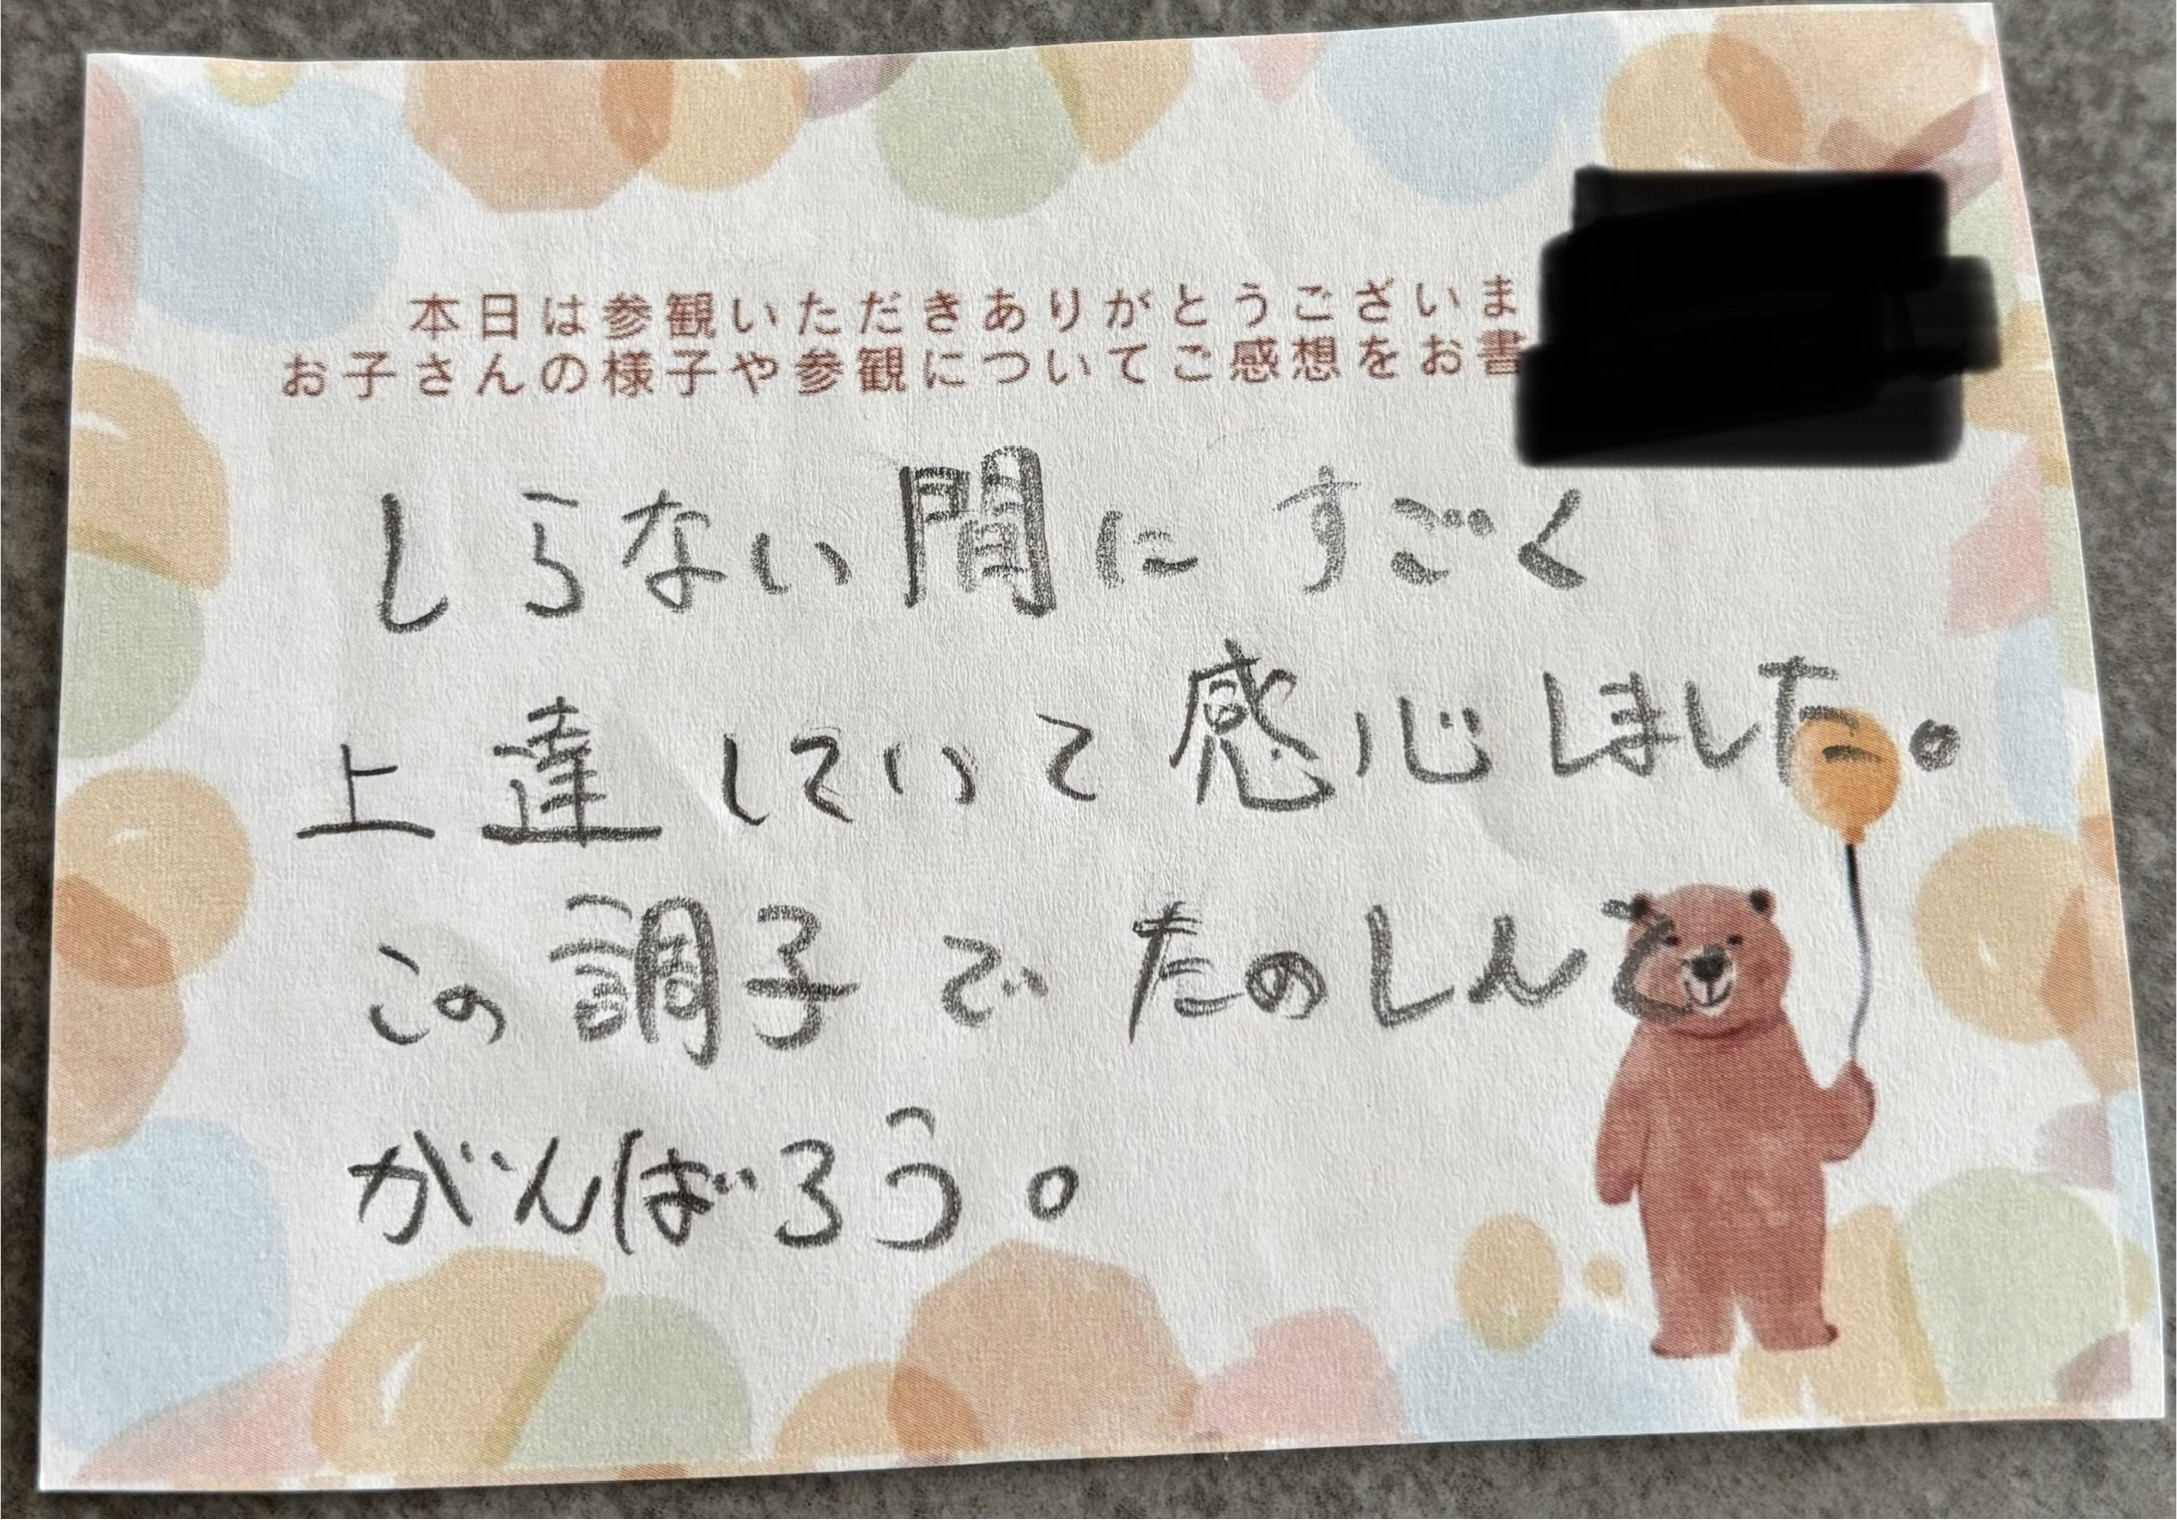 本日は参観いただきありがとうございま
お子さんの様子や参観についてご感想をお書
しらない間にすごく
上達していて感心しました。
この調子でたのしんで
がんばろう。